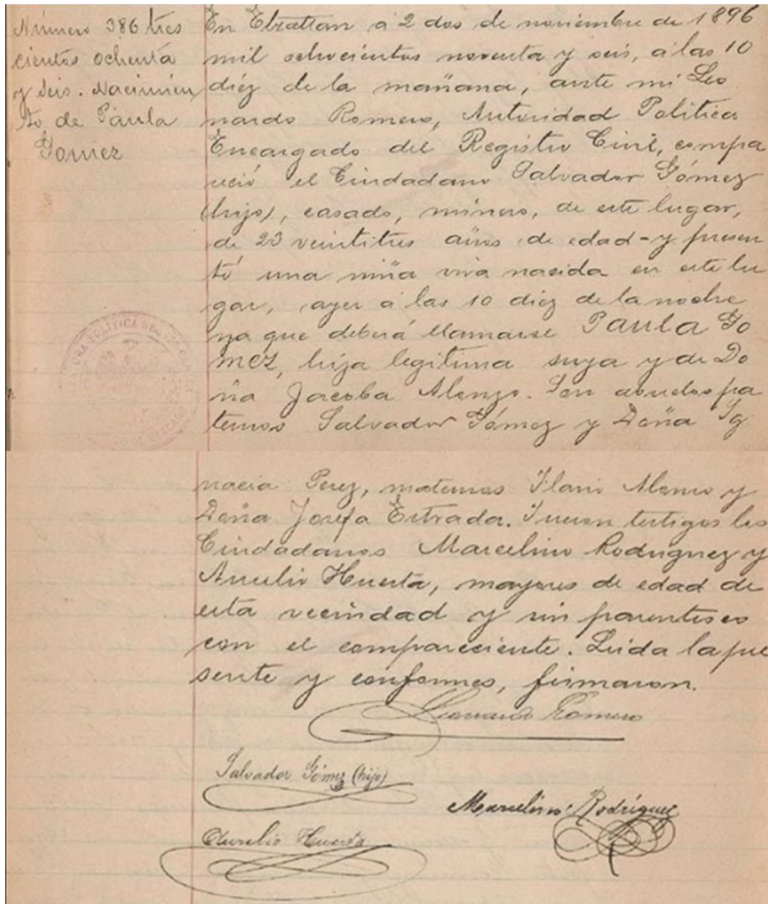 Número 386 tres
cientos ochenta
y seis. Nacimien
to de Paula
Gomez
En Etzatlan á 2 dos de noviembre de 1896
mil ochocientos noventa y seis, á las 10
diez de la mañana, ante mi Leo
nardo Romero, Autoridad Politica
Encargado del Registro Civil, compa
reció el Ciudadano Salvador Gómez
(hijo), casado, minero, de este lugar,
de 23 veintitres años de edad y presen
tó una niña viva nacida en este lu
gar, ayer á las 10 diez de la noche
ya que deberá llamarse Paula Go
mez, hija legitima suya y de Do
ña Jacoba Alonzo. Son abuelos pa
ternos Salvador Gómez y Doña Ig
nacia Perez, maternos Alonzo y
Doña Josefa Estrada. Fueron testigos los
Ciudadanos Marcelino Rodriguez y
Aurelio Huerta, mayores de edad de
esta vecindad y sin parentesco
con el compareciente. Leida la pre
sente y conformes, firmaron.
Leonardo Romero
Salvador Gómez (hijo)
Marcelino Rodríguez
Aurelio Huerta